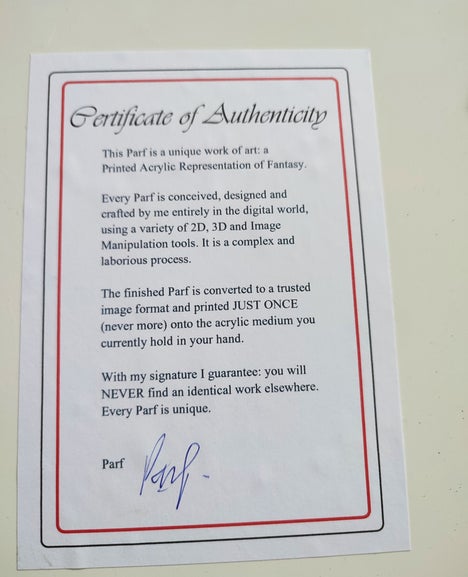 Certificate of Authenticity
This Parf is a unique work of art: a
Printed Acrylic Representation of Fantasy.
Every Parf is conceived, designed and
crafted by me entirely in the digital world,
using a variety of 2D, 3D and Image
Manipulation tools. It is a complex and
laborious process.
The finished Parf is converted to a trusted
image format and printed JUST ONCE
(never more) onto the acrylic medium you
currently hold in your hand.
With my signature I guarantee: you will
NEVER find an identical work elsewhere.
Every Parf is unique.
Parf Parf